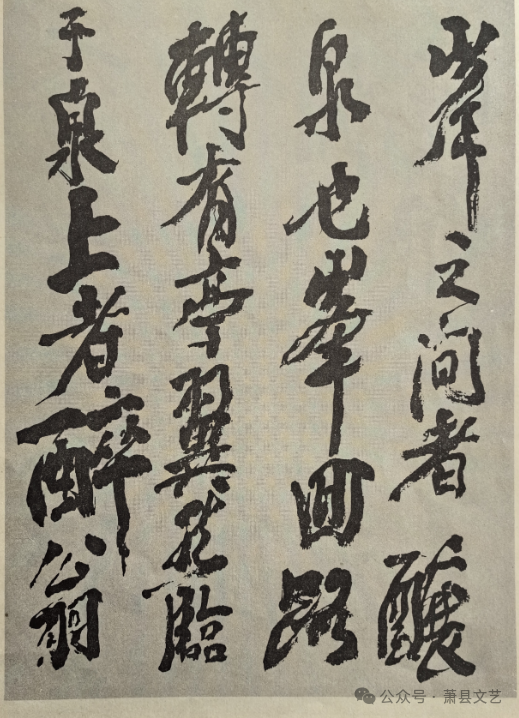 峯之間者釀
泉也峯回路
轉有亭翼然臨
于泉上者醉翁
公众号·萧县文艺